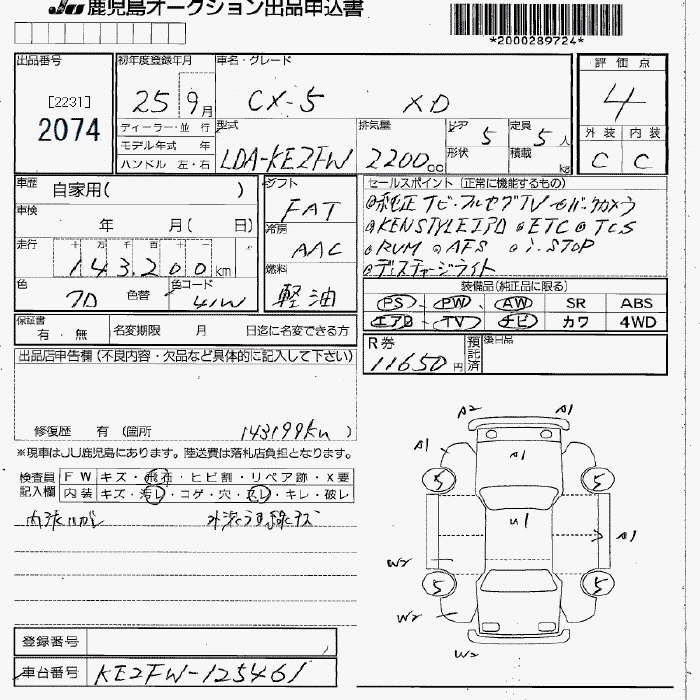 JU 鹿児島オークション出品申込書
*2000289724*
出品番号 [2231] 2074
初年度登録年月 25 9月
車名・グレード CX-5 XD
評価点 4
外装 C 内装 C
ディーラー・並行
モデル年式 年
ハンドル 左・右
型式 LDA-KE2FW
排気量 2200cc
ドア 5
形状
定員 5人
積載 kg
車歴 自家用( )
車検 年 月( 日)
走行 十万千百十 143,200km
色 クロ 色替 色コード 41W
シフト FAT
冷房 AAC
燃料 軽油
セールスポイント (正常に機能するもの)
純正ナビ・フルセグTV・バックカメラ
KENSTYLEエアロ ETC TCS
RVM AFS i-STOP
ディスチャージライト
装備品(純正品に限る)
PS PW AW SR ABS
エアB TV ナビ カワ 4WD
保証書 有・無
名変期限 月 日迄に名変できる方
R券 11650円
預託済
後日品
出品店申告欄(不良内容・欠品など具体的に記入して下さい)
修復歴 有 (箇所 143199km )
※現車はJU鹿児島にあります。陸送費は落札店負担となります。
検査員記入欄
FW キズ・飛石・ヒビ割・リペア跡・X要
内装 キズ・汚レ・コゲ・穴・スレ・キレ・破レ
内張ハガレ 外装うす線キズ
A2 A1
A1 A1
5 5
U1 A1
W2
5 5
W2
W2
登録番号
車台番号 KE2FW-125461